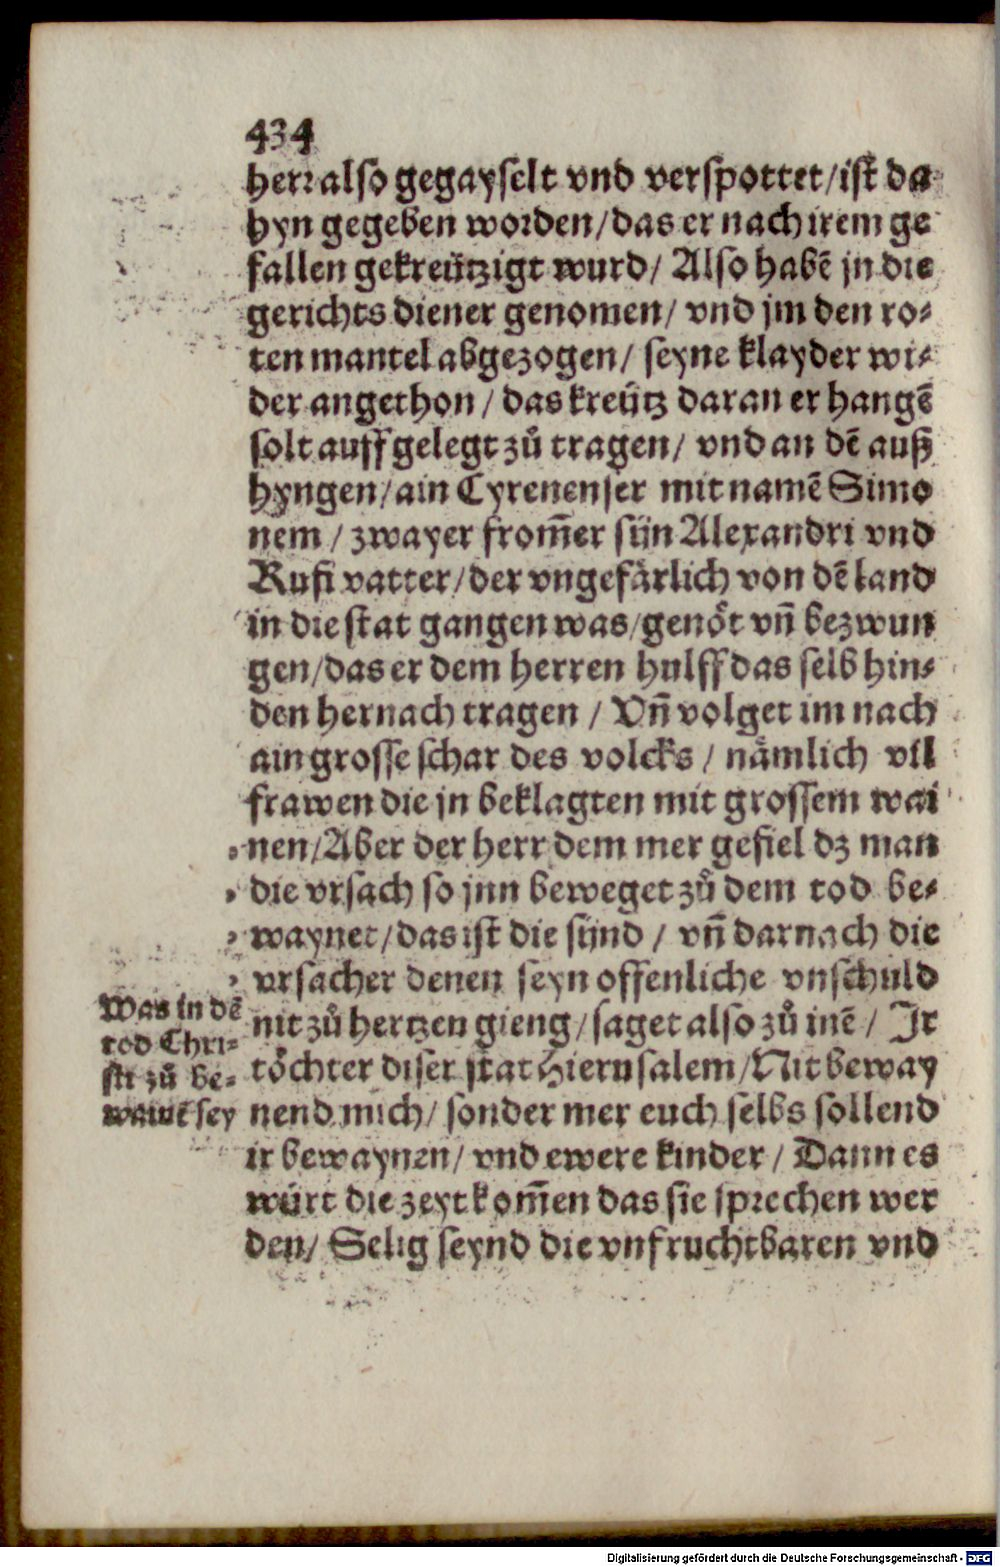 434
herr also gegayselt vnd verspottet/ist da
hyn gegeben worden/das er nach irem ge
fallen gekreützigt wurd/ Also habē jn die
gerichts diener genomen/ vnd jm den ro⸗
ten mantel abgezogen/ seyne klayder wi⸗
der angethon/ das kreütz daran er hangē
solt auff gelegt zů tragen/ vnd an dē auß
hyngen/ain Cyrenenser mit namē Simo
nem/ zwayer from̄er sün Alexandri vnd
Rufi vatter/der vngefärlich von dē land
in die stat gangen was/genöt vn̄ bezwun
gen/das er dem herren hulff das selb hin⸗
den hernach tragen/ Vn̄ volget im nach
ain grosse schar des volcks/ nämlich vil
frawen die jn beklagten mit grossem wai
nen/Aber der herr dem mer gefiel dz man
die vrsach so jnn beweget zů dem tod be⸗
waynet/das ist die sünd/ vn̄ darnach die
vrsacher denen seyn offenliche vnschuld
nit zů hertzen gieng/saget also zů inē/ Ir
töchter diser stat Hierusalem/Nit beway
nend mich/ sonder mer euch selbs sollend
ir bewaynen/ vnd ewere kinder/ Dann es
würt die zeyt kom̄en das sie sprechen wer
den/ Selig seynd die vnfruchtbaren vnd
Was in dē
tod Chri⸗
sti zů be⸗
wainē sey
Digitalisierung gefördert durch die Deutsche Forschungsgemeinschaft - DFG